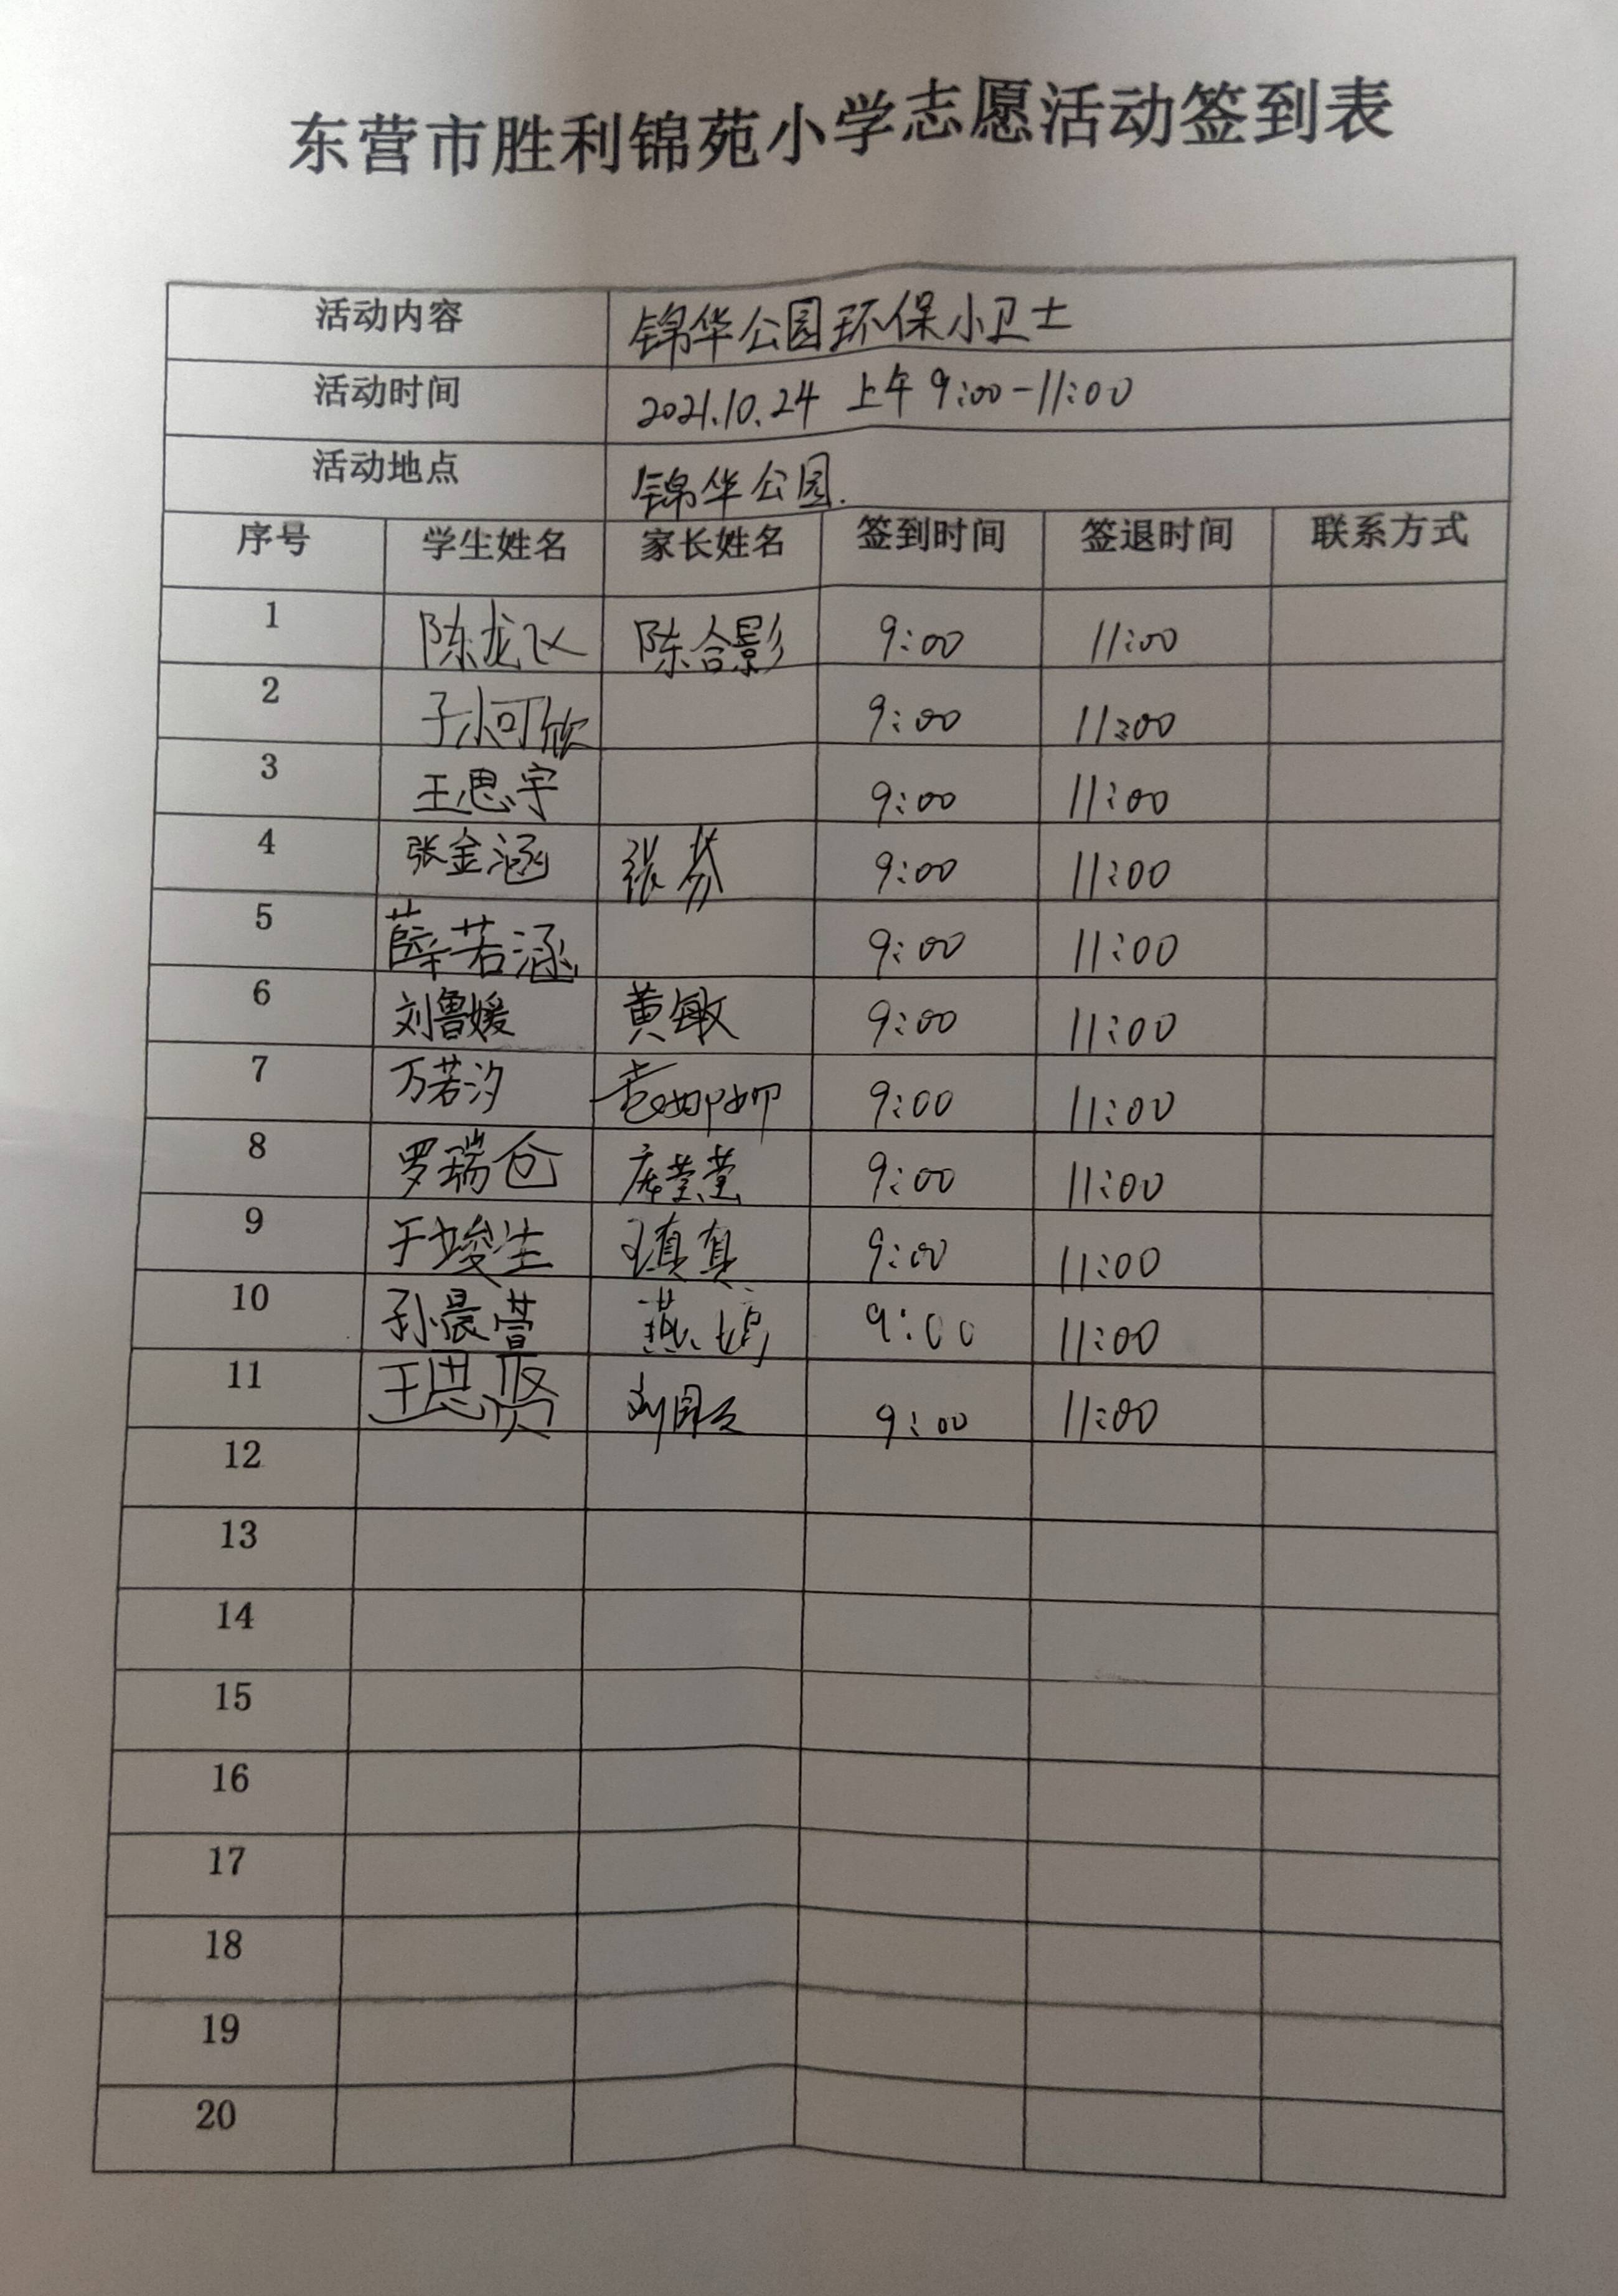 东营市胜利锦苑小学志愿活动签到表
活动内容 锦华公园环保小卫士
活动时间 2021.10.24 上午 9:00-11:00
活动地点 锦华公园.
序号 学生姓名 家长姓名 签到时间 签退时间 联系方式
1 陈龙飞 陈合影 9:00 11:00
2 孙可欣 9:00 11:00
3 王思宇 9:00 11:00
4 张金涵 张芬 9:00 11:00
5 薛若涵 9:00 11:00
6 刘鲁媛 黄敏 9:00 11:00
7 万若汐 袁娜娜 9:00 11:00
8 罗瑞仓 庞莹莹 9:00 11:00
9 于竣生 王真真 9:00 11:00
10 孙晨萱 燕娟 9:00 11:00
11 王思贤 9:00 11:00
12
13
14
15
16
17
18
19
20